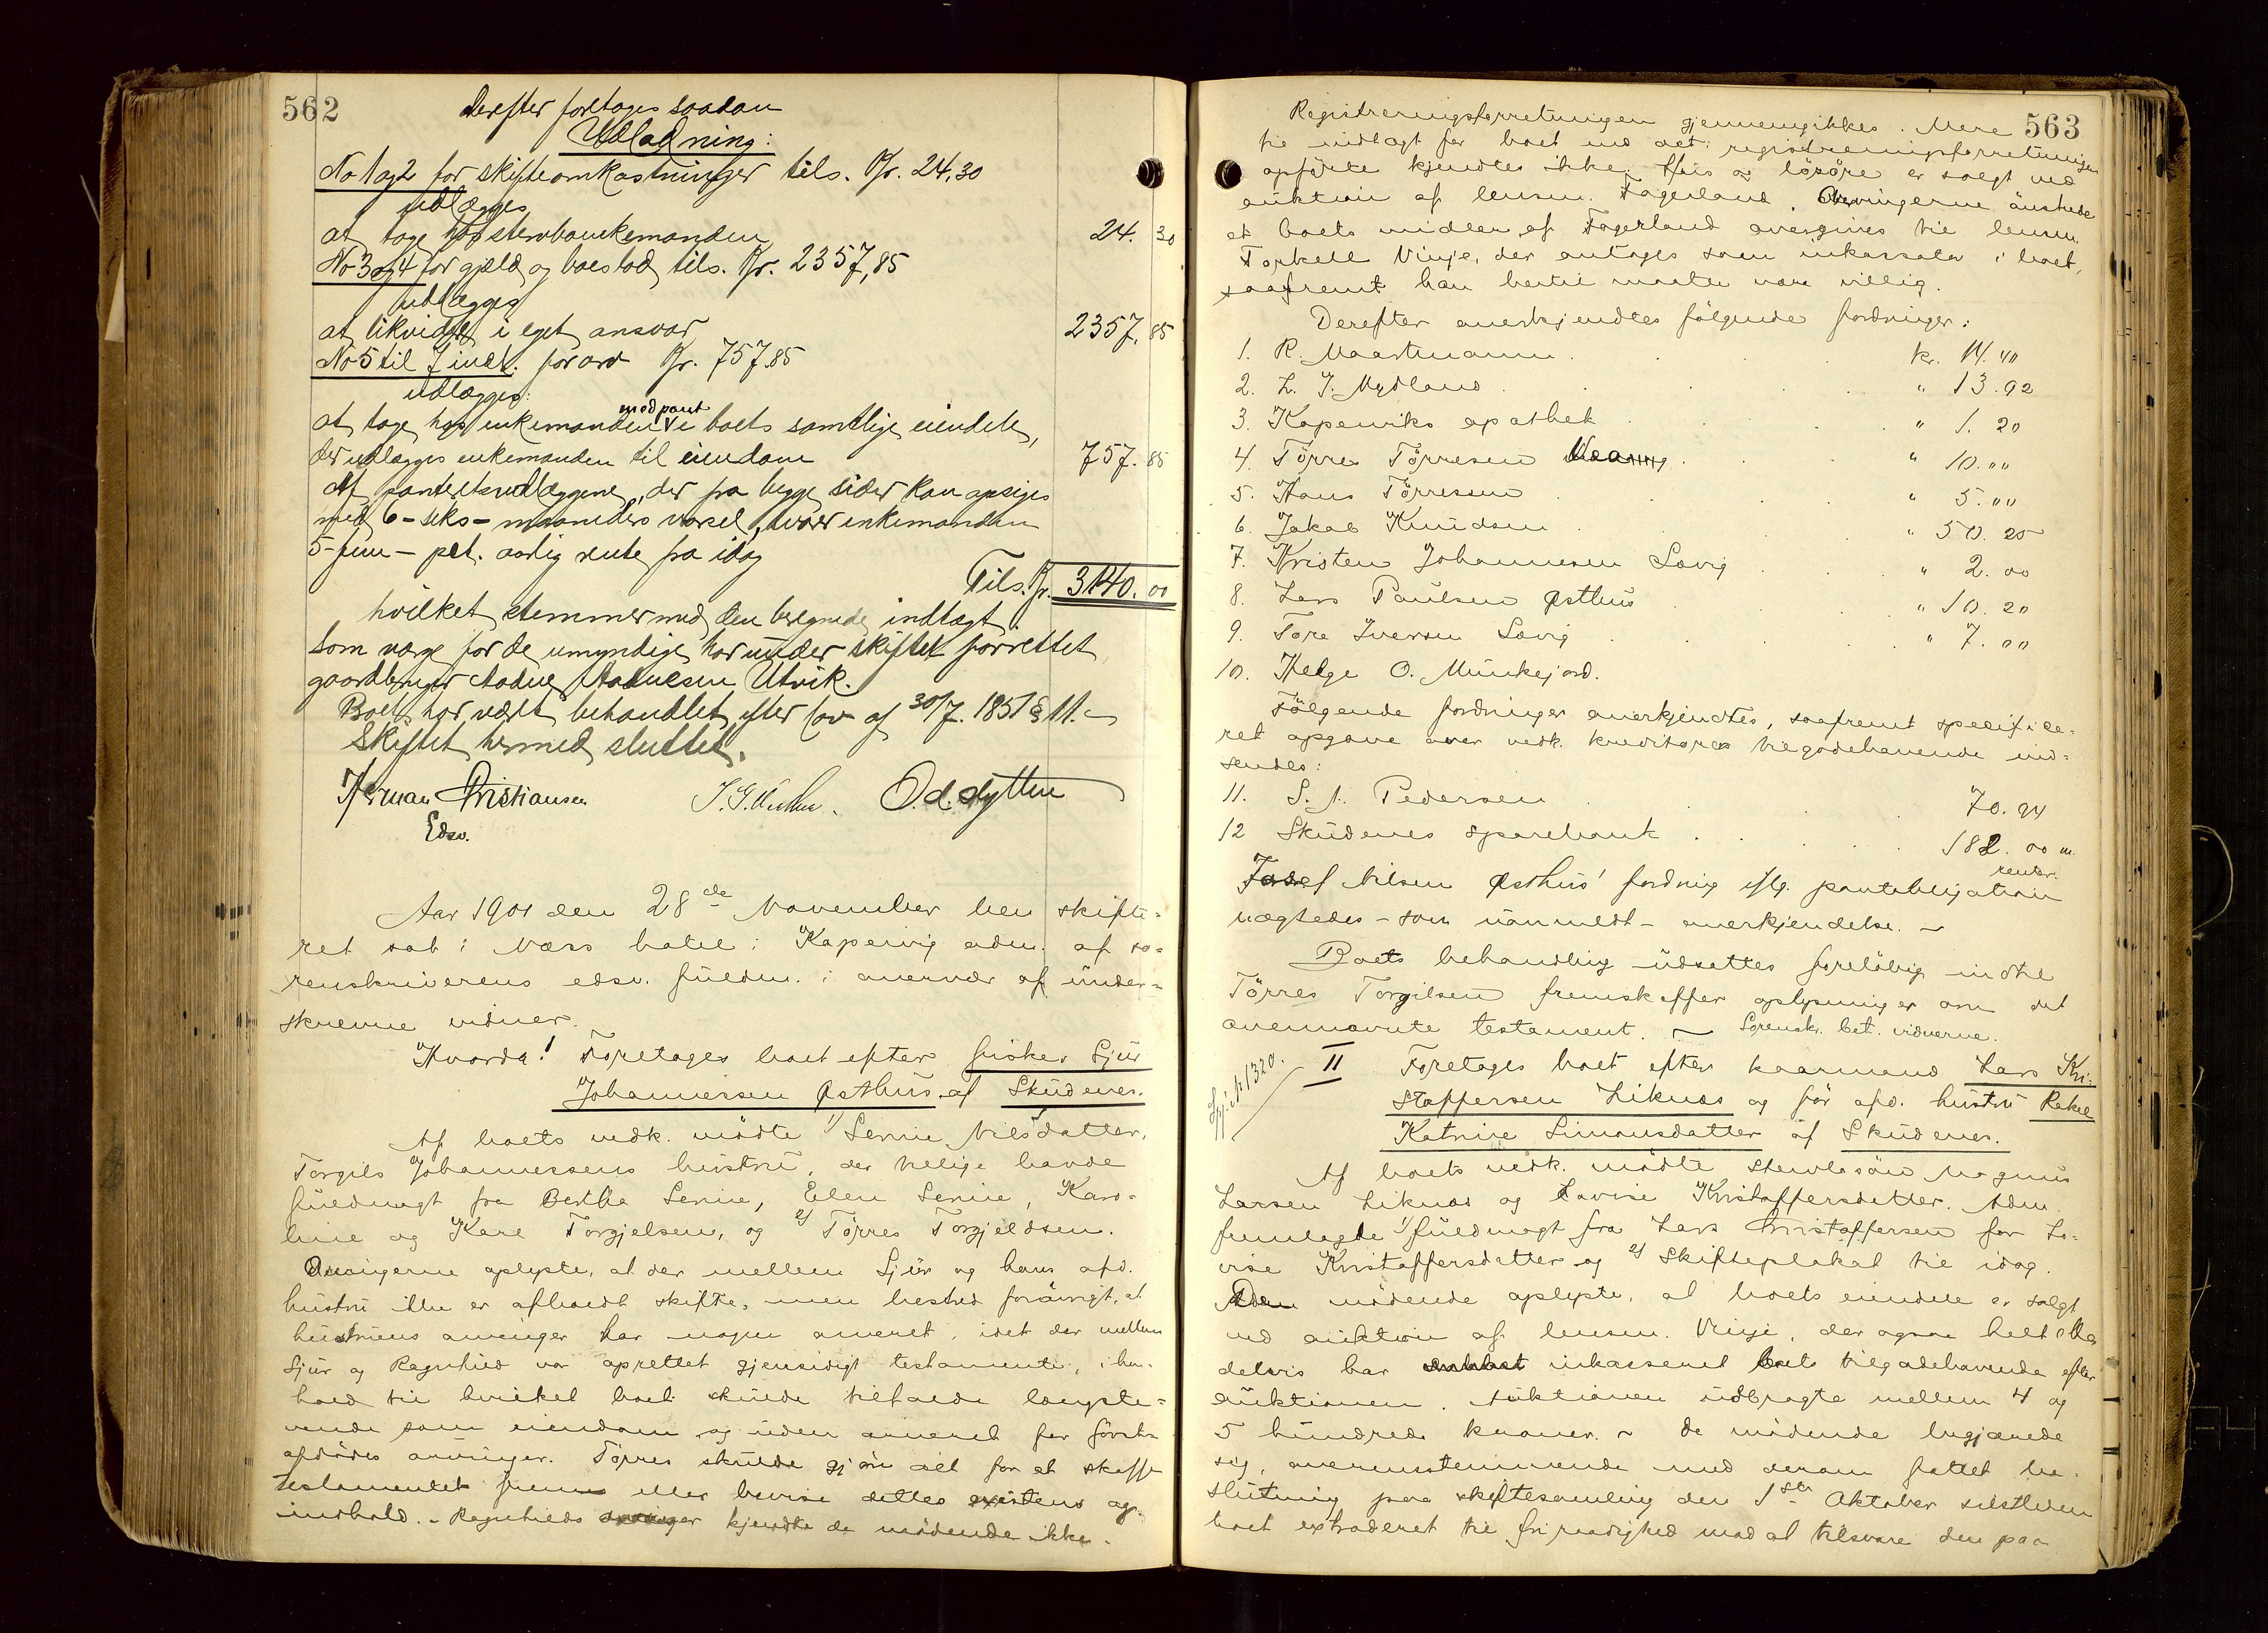 562
Derefter foretoges saadan
Udlodning:
No 1 og 2 for skifteomkostninger tils. Kr. 24,30
udlægges
at tage hos sterbboenkemanden 24. 30
No 3 og 4 for gjæld og boeslod tils. Kr. 2357,85
udlægges
at likvidere i eget ansvar 2357. 85
No 5 til 7 incl. for arv Kr. 757.85
udlægges:
at tage hos enkemanden mod pant i boets samtlige eiendele,
der udlægges enkemanden til eiendom 757. 85
Af panteretsudlæggene, der fra begge sider kan opsiges
med 6 - seks - maaneders varsel, svarer enkemanden
5 - fem - pct. aarlig rente fra idag
Tils. Kr. 3140. 00
hvilket stemmer med den beregnede indtægt.
Som værge for de umyndige har under skiftet forrettet
gaardbruger Aadne Aadnesen Utvik.
Boet har været behandlet efter lov af 30/7. 1851 § 11. -
Skiftet hermed sluttet.
Herman Christiansen O. d. Lytten
Edsv.
Aar 1901 den 28de November blev skifte-
ret sat i Næss hotel i Kopervig adm. af so-
renskriverens edsv. fuldm. i overvær af under-
skrevne vidner.
Hvorda! Foretoges boet efter fisker Sjur
Johannessen Østhus af Skudenes.
Af boets vedk. mødte 1) Serine Nilsdatter,
Torgils Johannessens hustru, der tillige havde
fuldmagt fra Berthe Serine, Elen Serine, Karo-
line og Kare Torgjelsen, og 2) Tørres Torgjeldsen.
Arvingerne oplyste, at der mellem Sjur og hans afd.
hustru ikke er afholdt skifte, men bestred forøvrigt, at
hustruens arvinger har nogen arveret, idet der mellem
Sjur og Ragnhild var oprettet gjensidigt testamente, i hen-
hold til hvilket boet skulde tilfalde længstle-
vende som eiendom og uden arveret for først-
afdødes arvinger. Tørres skulde gjøre alt for at skaffe
testamentet frem eller bevise dettes existens og
indhold. - Ragnhilds arvinger kjendte de mødende ikke.
563
Registreringsforretningen gjennemgikkes. Mere
til indtægt for boet end det i registreringsforretningen
opførte kjendtes ikke. Hus og løsøre er solgt ved
auktion af lensm. Fagerland. Arvingerne ønskede
at boets midler af Fagerland overgives til lensm.
Torkell Vinje, der antages som inkassator i boet,
saafremt han hertil maatte være villig.
Derefter anerkjendtes følgende fordringer:
1. R. Maastmann kr. 14. 40
2. L. J. Mydland " 13. 92
3. Koperviks apothek " 1. 20
4. Tørres Tørresen " 10. "
5. Hans Tørresen " 5. "
6. Jakob Knudsen " 50. 20
7. Kristen Johannesen Sævig " 2. 00
8. Lars Paulsen Østhus " 10. 20
9. Tore Iversen Sævig " 7. 00
10. Helge O. Munkejord.
Følgende fordringer anerkjendtes, saafremt specifice-
ret opgave over vedk. kreditorers tilgodehavende ind-
sendes:
11. S. A. Pedersen 70. 94
12 Skudenes sparebank 182. 00 m.
renter.
Josef Nilsen Østhus' fordring iflg. pantobligation
nægtedes - som uanmeldt - anerkjendelse. -
Boets behandling udsattes foreløbig indtil
Tørres Torgilsen fremskaffer oplysninger om det
ovennævnte testament. - Sorensk. bet. vidnerne.
1320.
II Foretoges boet efter kaarmand Lars Kri-
stoffersen Liknes og før afd. hustru Rakel
Katrine Simonsdatter af Skudenes.
Af boets vedk. mødte stervbosøn Magnus
Larsen Liknes og Lovise Kristoffersdatter. Adm.
fremlagde 1) fuldmagt fra Lars Kristoffersen for Lo-
vise Kristoffersdatter og 2) Skifteplakat til idag.
De mødende oplyste, at boets eiendele er solgt
ved auktion af lensm. Vinje, der ogsaa helt eller
delvis har inkasseret boets tilgodehavende efter
auktionen. Auktionen udbragte mellem 4 og
5 hundrede kroner. - De mødende begjærede
sig, overensstemmende med derom fattet be-
slutning paa skiftesamling den 1ste Oktober sidstleden
boet extraderet til fri raadighed mod at tilsvare den paa